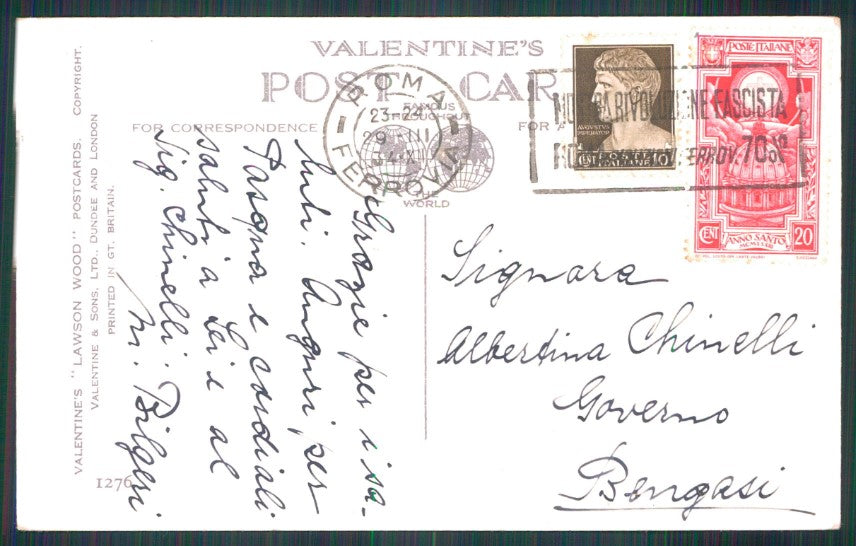 VALENTINE'S
POST CARD
FAMOUS
THROUGHOUT
THE
WORLD
FOR CORRESPONDENCE
FOR A
ROMA
23-24
29 III
34 XII
FERROVIA
MOSTRA RIVOLUZIONE FASCISTA
FERROV. 70%
AVGVSTVS
IMPERATOR
CENT POSTE ITALIANE 10
POSTE ITALIANE
CENT ANNO SANTO 20
VALENTINE'S "LAWSON WOOD" POSTCARDS. COPYRIGHT.
VALENTINE & SONS, LTD., DUNDEE AND LONDON
PRINTED IN GT. BRITAIN.
1276
Grazie per i sa-
luti. Auguri per
Pasqua e cordiali
saluti a Lei e al
Sig. Chinelli.
M. Bilgeri
Signora
Albertina Chinelli
Governo
Bengasi